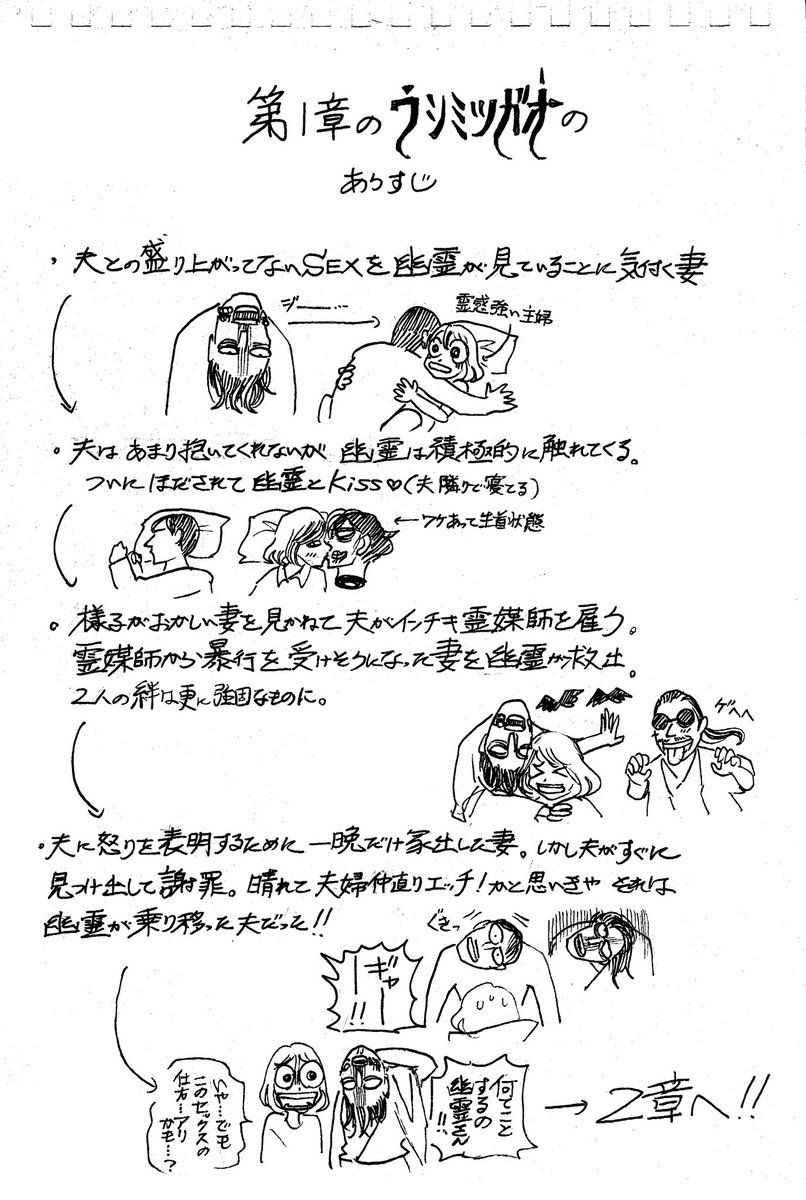 第1章のウシミツガオの
あらすじ
・夫との盛り上がってないSEXを幽霊が見ていることに気付く妻
ジー……
霊感強い主婦
・夫はあまり抱いてくれないが幽霊は積極的に触れてくる。
ついにほだされて幽霊とKiss♡(夫隣りで寝てる)
←ワケあって生首状態
・様子がおかしい妻を見かねて夫がインチキ霊媒師を雇う。
霊媒師から暴行を受けそうになった妻を幽霊が救出。
2人の絆は更に強固なものに。
ゲヘヘ
・夫に怒りを表明するために一晩だけ家出した妻。しかし夫がすぐに
見つけ出して謝罪。晴れて夫婦仲直りエッチ!かと思いきやそれは
幽霊が乗り移った夫だった!!
ぐきっ
ギャー!!
何てこと
するの
幽霊さん!!
いや…でも
このセックスの
仕方…アリ
かも…?
→2章へ!!